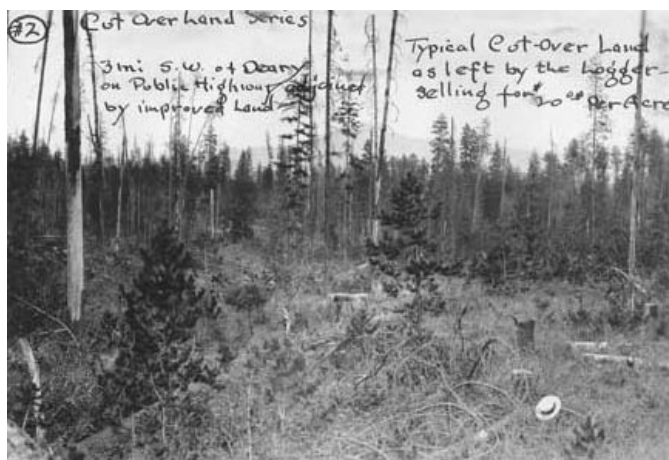 #2
Cut Over Land Series
3 mi S.W. of Deary
on Public Highway adjoined
by improved Land
Typical Cut-Over Land
as left by the Logger
selling for $20.00 Per Acre